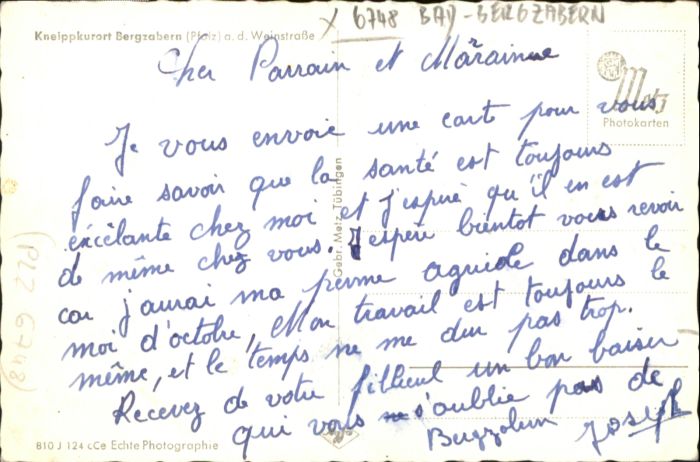 x 6748 BAD-BERGZABERN
Kneippkurort Bergzabern (Pfalz) a. d. Weinstraße
Cher Parrain et Mârainne
Metz
Photokarten
Je vous envoie une cart pour vous
faire savoir que la santé est toujours
excèlante chez moi et j'espère qu'il en est
de même chez vous. J'espère bientot vous revoir
car j'aurai ma perme aguide dans le
moi d'octobre, Mon travail est toujours le
même, et le temps ne me dur pas trop.
Recevez de votre fillieul un bon baiser
qui vous ne s'oublie pas de
Bergzabern Joseph
Gebr. Metz-Tübingen
B10 J 124 cCe Echte Photographie
(PLZ 6748)